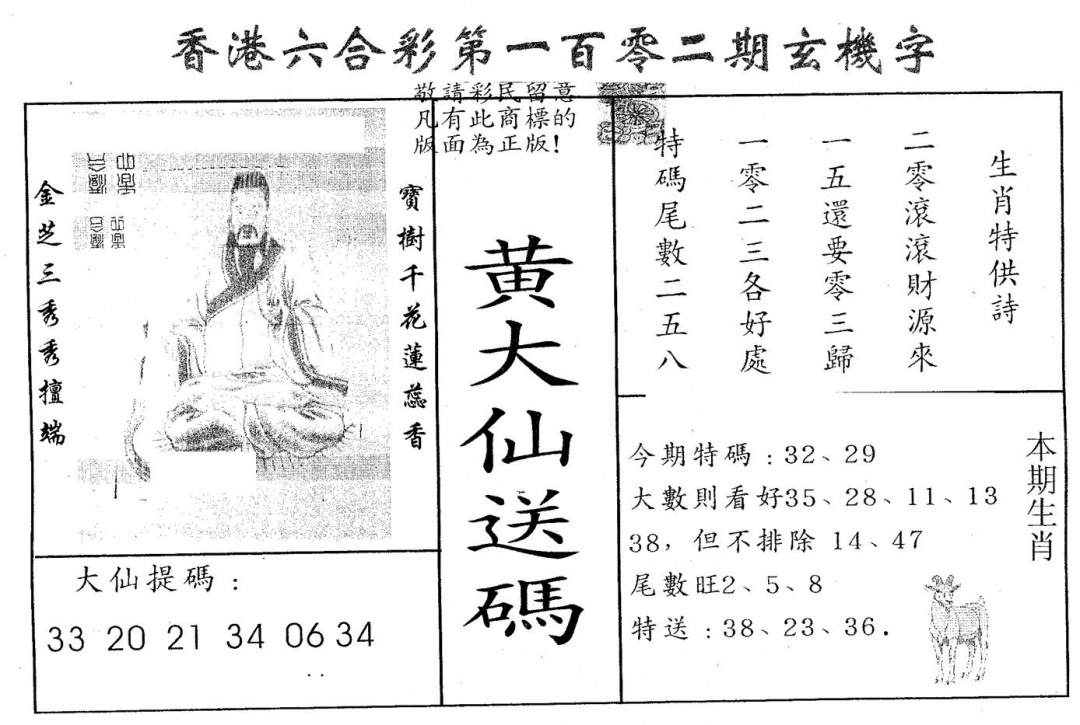 香港六合彩第一百零二期玄機字
敬請彩民留意
凡有此商標的
版面為正版!
金芝三秀秀擅端
寶樹千花蓮蕊香
大仙提碼:
33 20 21 34 06 34
黃大仙送碼
生肖特供詩
二零滾滾財源來
一五還要零三歸
一零二三各好處
特碼尾數二五八
本期生肖
今期特碼:32、29
大數則看好35、28、11、13
38, 但不排除 14、47
尾數旺2、5、8
特送:38、23、36.